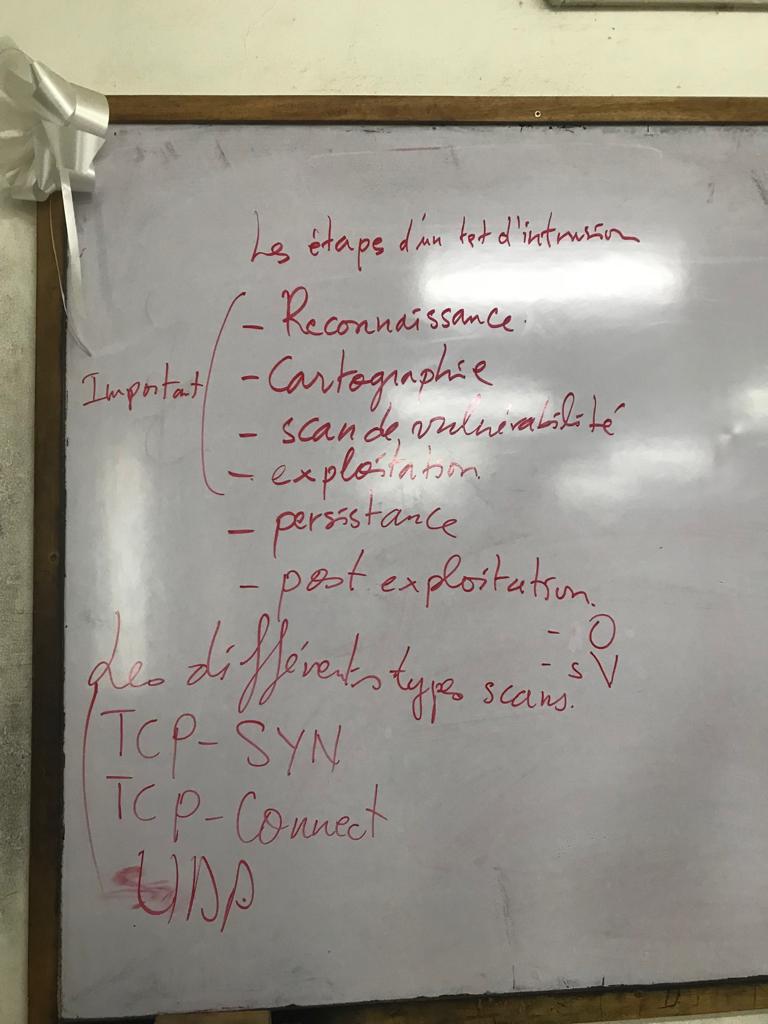 Les étaps d'un test d'intrusion
- Reconnaissance.
Important
- Cartographie
- scan de vulnérabilité
- exploitation.
- persistance
- post exploitation.
- O
- sV
Les différents types scans.
TCP-SYN
TCP-Connect
UDP